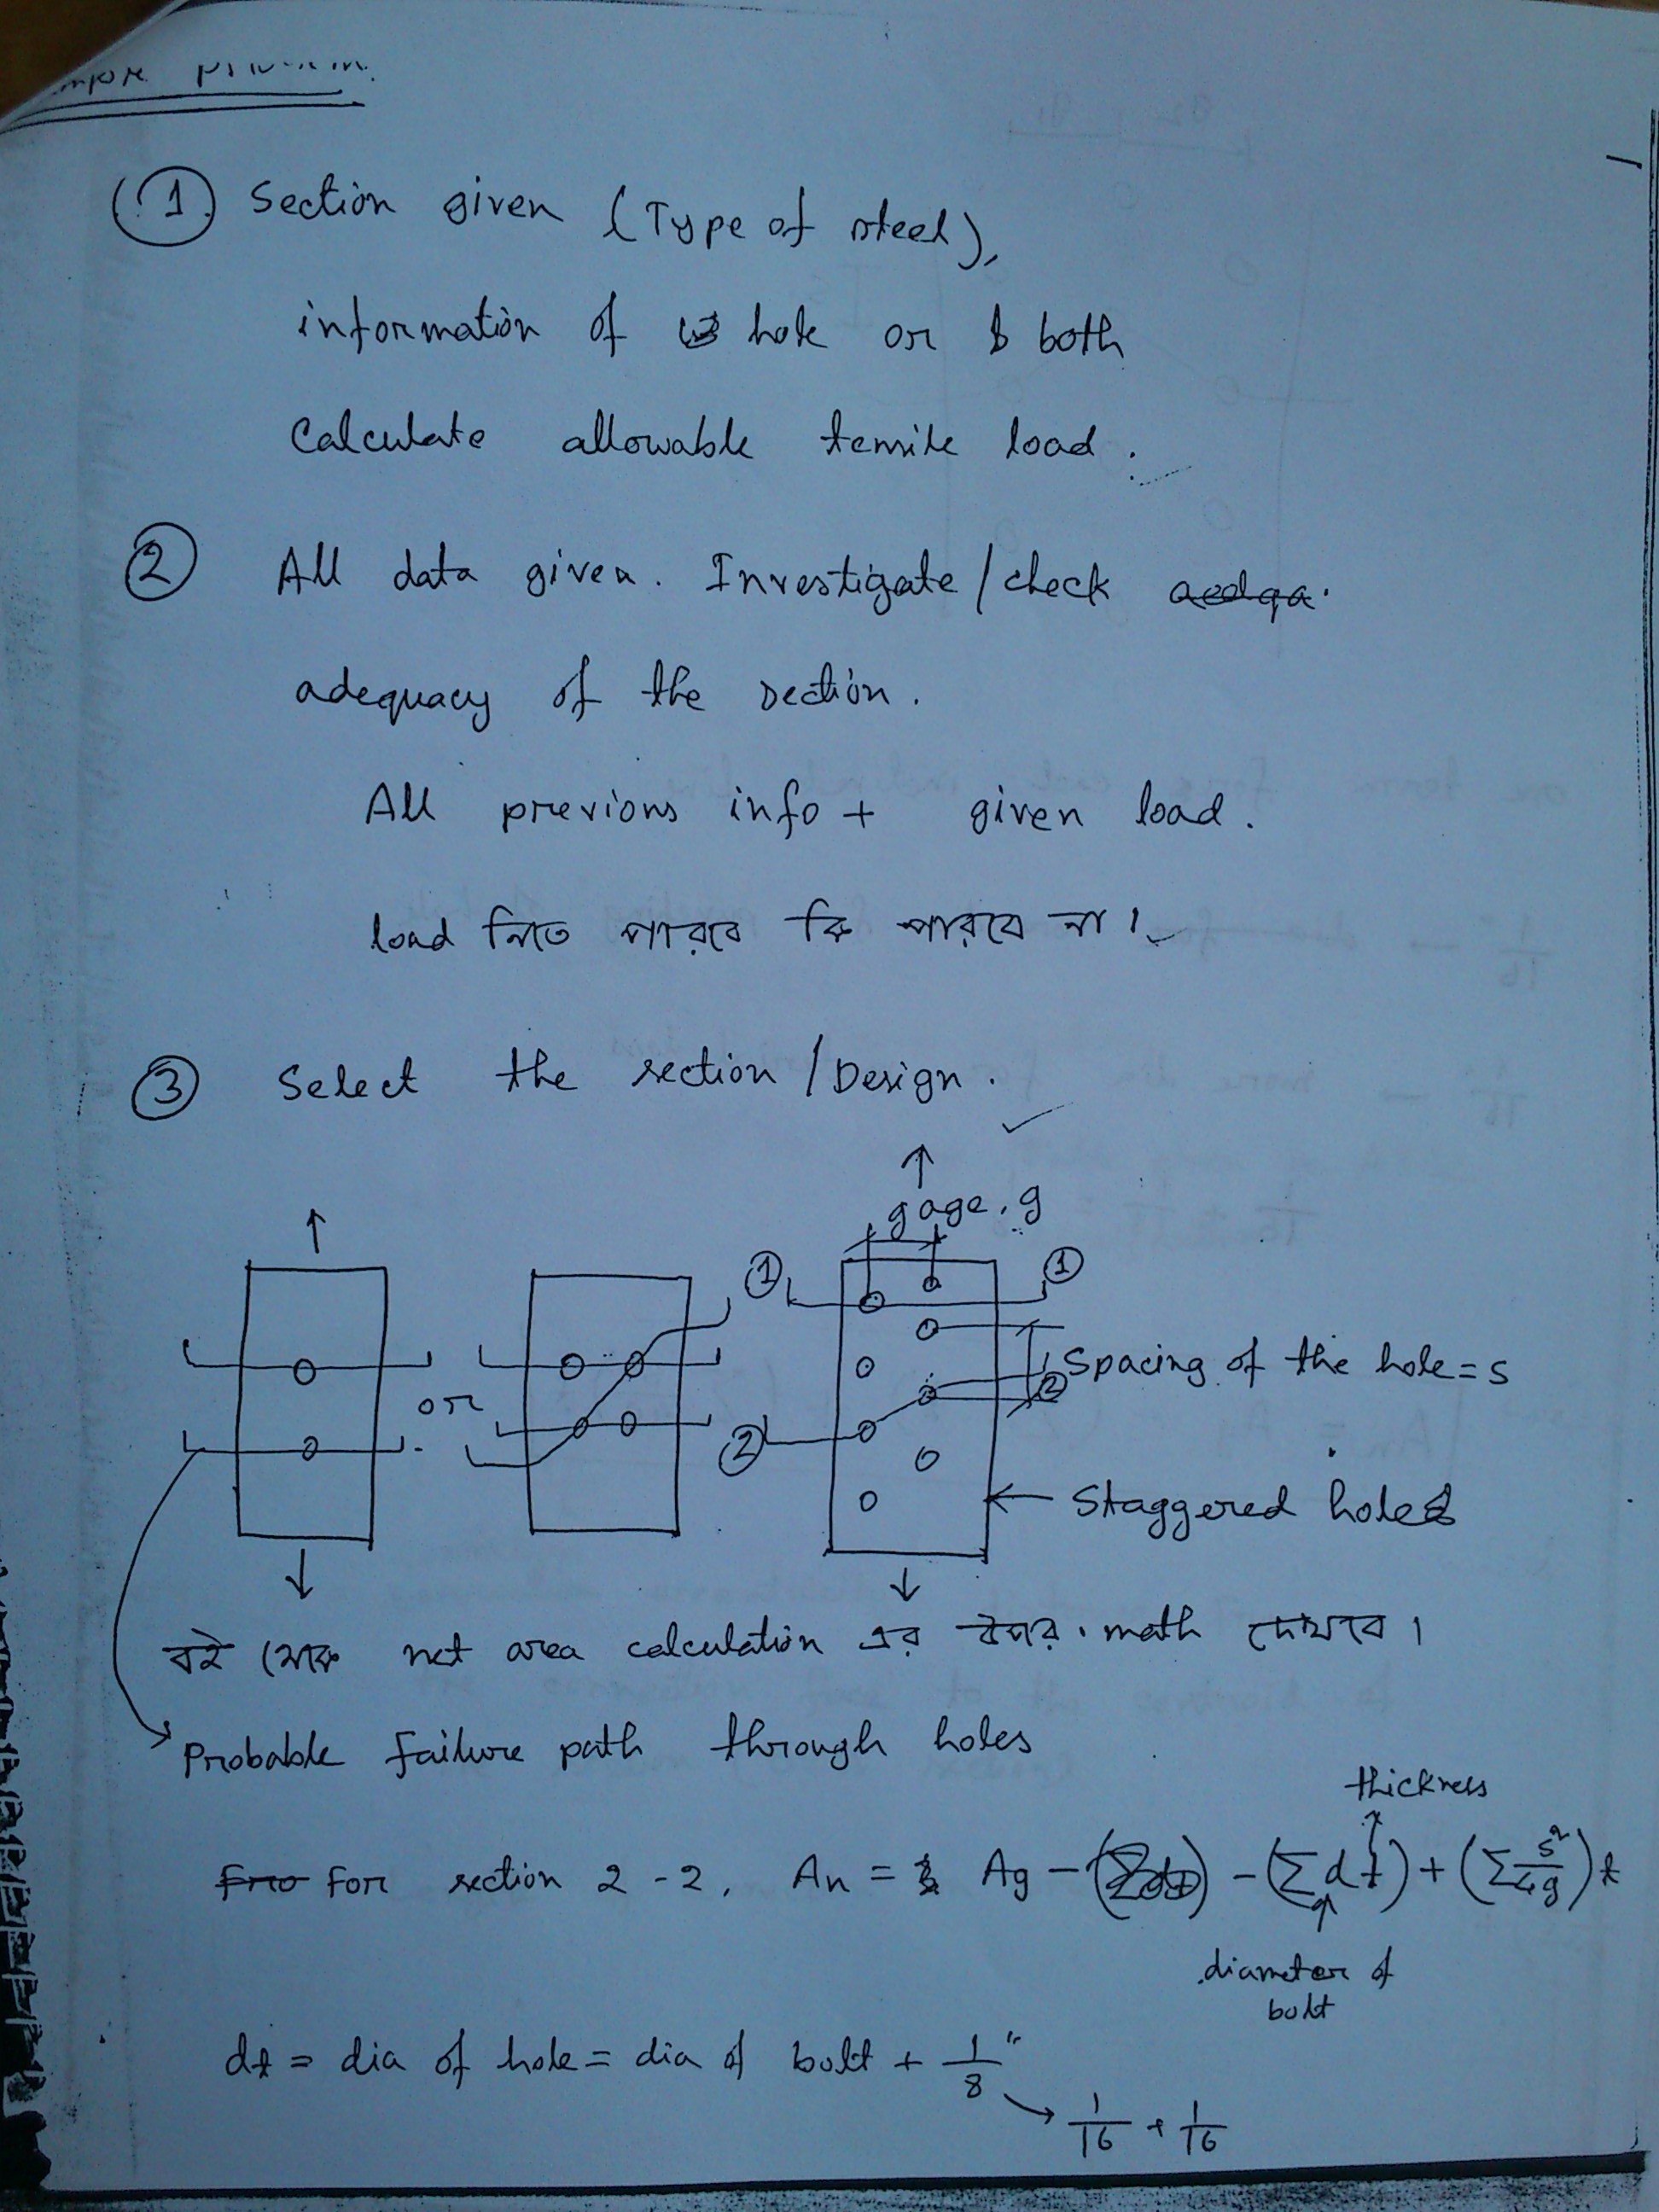 (1) Section given (Type of steel),
information of hole or both
Calculate allowable tensile load.
(2) All data given. Investigate/check
adequacy of the section.
All previous info + given load.
load নিতে পারবে কি পারবে না।
(3) Select the section/Design.
gage, g
(1) (1)
Spacing of the hole = s
or
(2) (2)
Staggered holes
বই থেকে net area calculation এর উপর math দেখবে।
Probable failure path through holes
thickness
For section 2-2, An = Ag - (Σdt) + (Σ s²/4g)t
diameter of
bolt
= dia of hole = dia of bolt + 1/8"
1/16 + 1/16